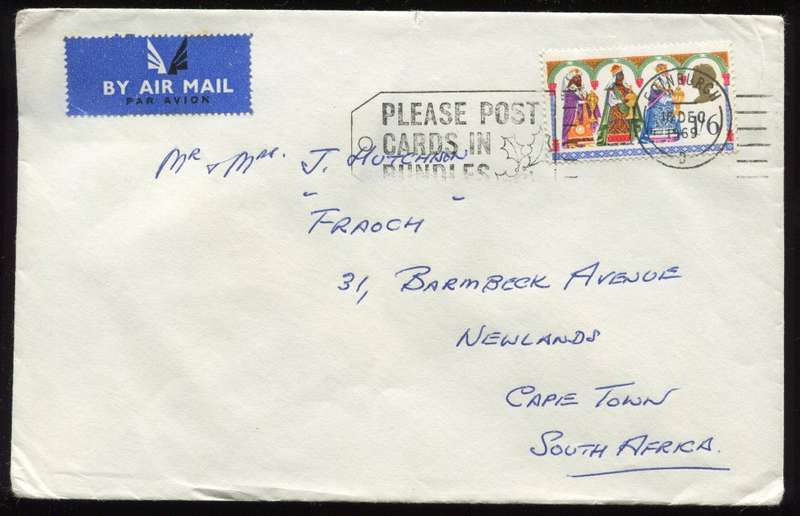 BY AIR MAIL
PAR AVION
PLEASE POST
CARDS IN
BUNDLES
EDINBURGH
DEC
1969
1/6
MR + MRS. J. HUTCHISON
"FRAOCH"
31, BARMBECK AVENUE
NEWLANDS
CAPE TOWN
SOUTH AFRICA.